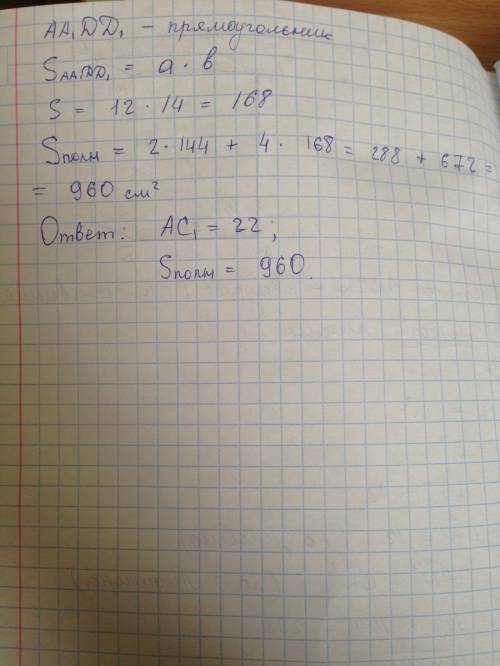 АА₁DD₁ – прямоугольник
S_AA₁DD₁ = a · b
S = 12 · 14 = 168
Sполн = 2·144 + 4· 168 = 288 + 672 =
= 960 см²
Ответ: AC₁ = 22;
Sполн = 960.